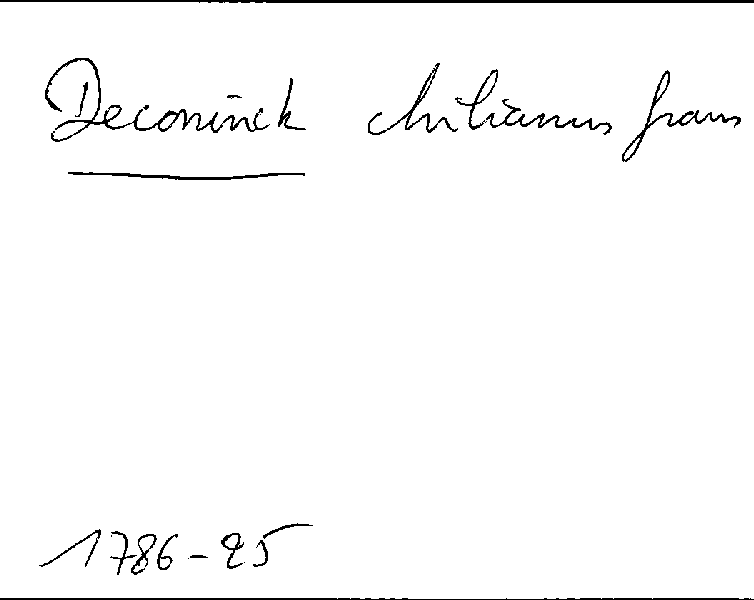 Deconinck chilianus frans
1786-25